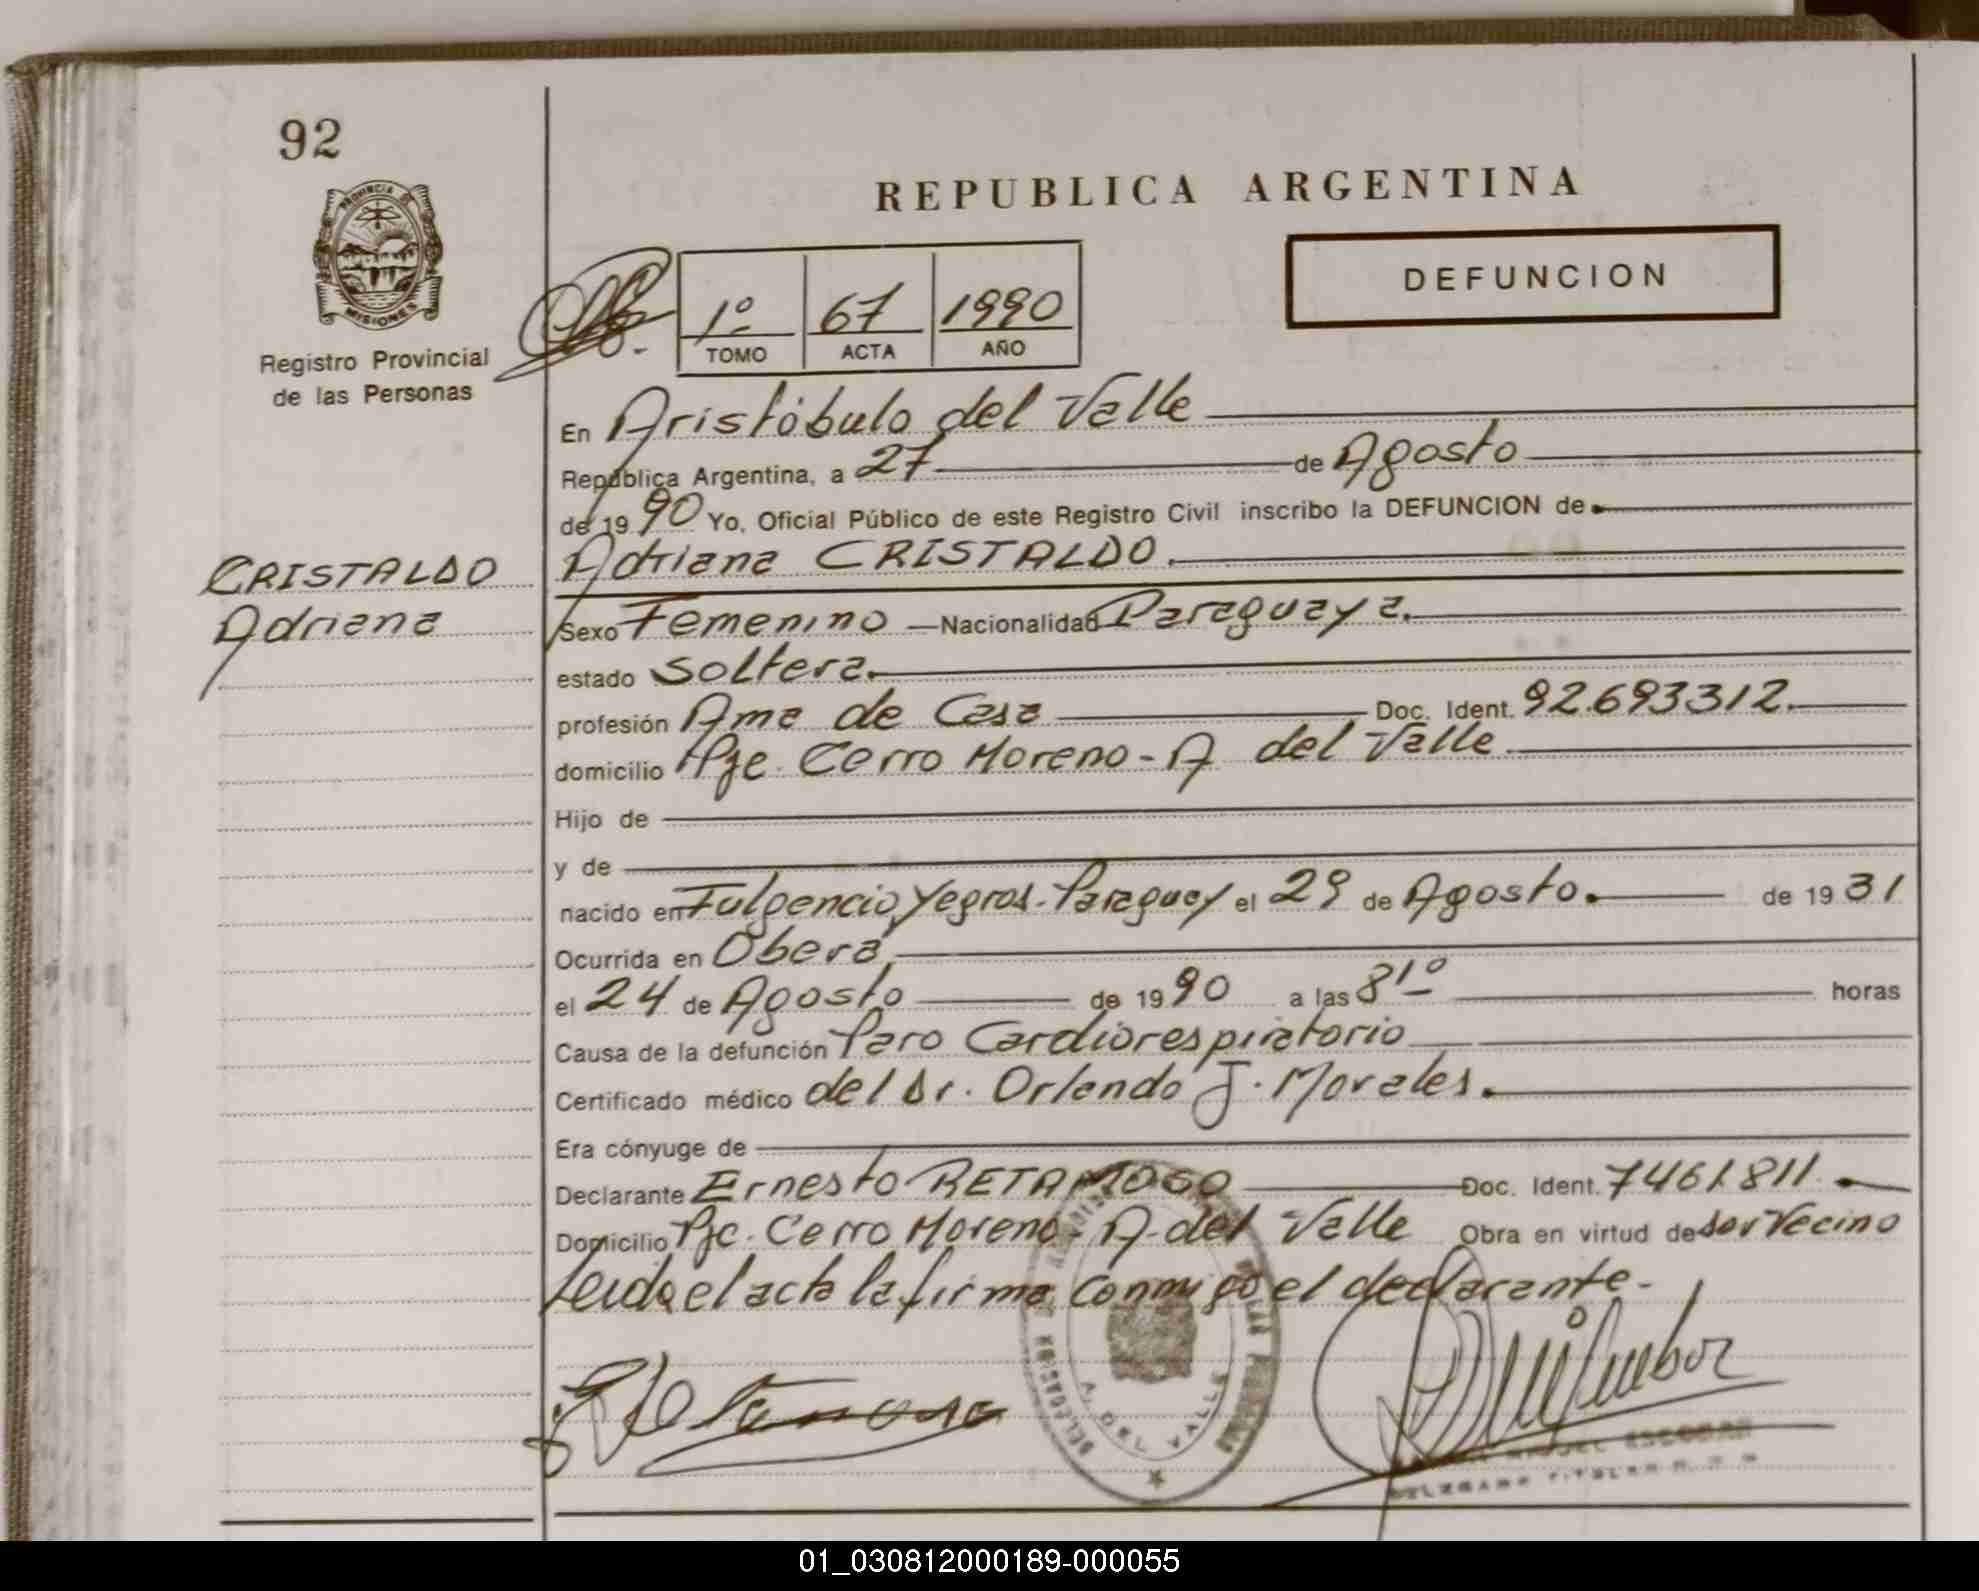 92
PROVINCIA DE
MISIONES
Registro Provincial
de las Personas
REPUBLICA ARGENTINA
DEFUNCION
1º 67 1990
TOMO ACTA AÑO
En Aristóbulo del Valle
República Argentina, a 27 de Agosto
de 19 90 Yo, Oficial Público de este Registro Civil inscribo la DEFUNCION de
CRISTALDO
Adriana
Adriana CRISTALDO.
Sexo Femenino Nacionalidad Paraguaya.
estado Soltera.
profesión Ama de Casa Doc. Ident. 92.693312.
domicilio Pje. Cerro Moreno - A del Valle
Hijo de
y de
nacido en Fulgencio Yegros - Paraguay el 29 de Agosto. de 19 31
Ocurrida en Oberá,
el 24 de Agosto de 19 90 a las 8'º horas
Causa de la defunción Paro Cardiorespiratorio
Certificado médico del Dr. Orlando J. Morales.
Era cónyuge de
Declarante Ernesto RETAMOSO Doc. Ident. 7461.811.
Domicilio Pje. Cerro Moreno - A. del Valle Obra en virtud de ser Vecino
Leida el acta la firma conmigo el declarante.
A. DEL VALLE
DELEGACION
ESCOBAR
01_030812000189-000055